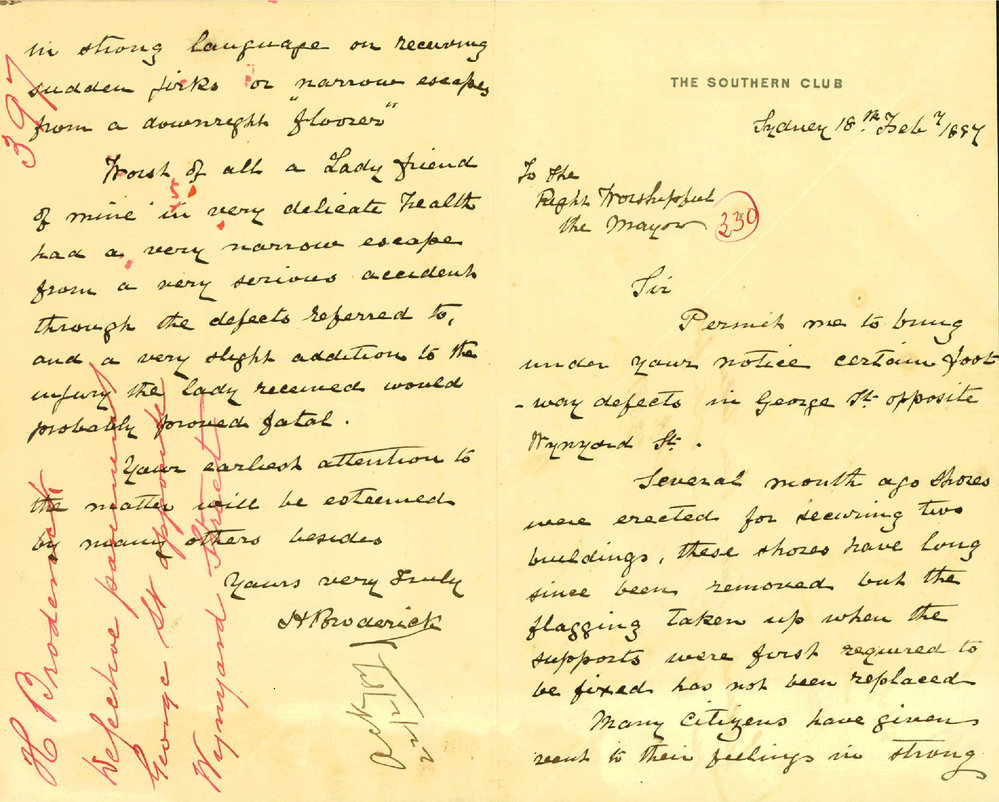 THE SOUTHERN CLUB
Sydney 18th Feby 1887
To the
Right Worshipful
the Mayor
330
Sir
Permit me to bring
under your notice certain foot
-way defects in George St. opposite
Wynyard St.
Several month ago shores
were erected for securing two
buildings, these shores have long
since been removed but the
flagging taken up when the
supports were first required to
be fixed has not been replaced
Many Citizens have given
vent to their feelings in strong
in strong language on receiving
sudden jirks or narrow escapes
from a downright "floorer"
Worst of all a Lady friend
of mine in very delicate health
had a very narrow escape
from a very serious accident
through the defects referred to,
and a very slight addition to the
injury the lady received would
probably proved fatal.
Your earliest attention to
the matter will be esteemed
by many others besides
Yours very truly
H Broderick
397
H Broderick
Defective pavement
George St opposite
Wynyard Street
Ackd